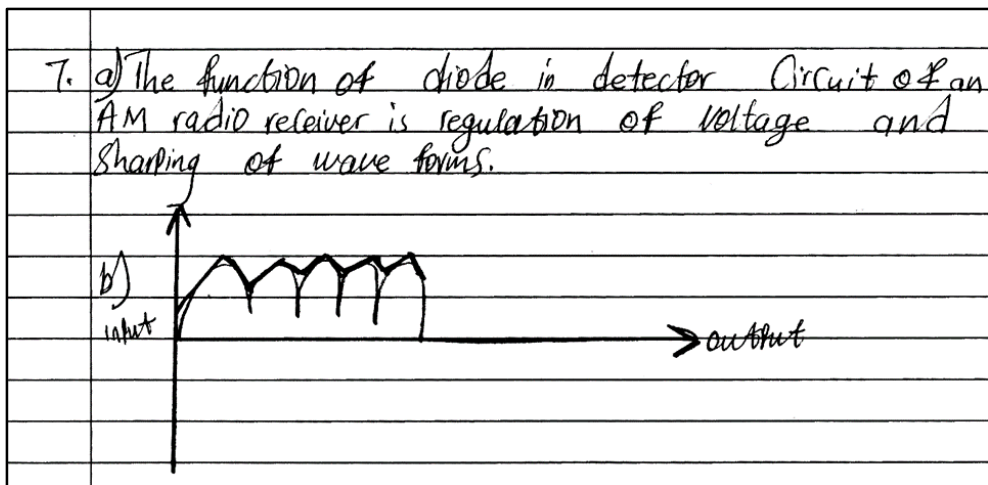 7. a) The function of diode in detector Circuit of an
AM radio receiver is regulation of voltage and
Sharping of wave forms.
b)
input
output